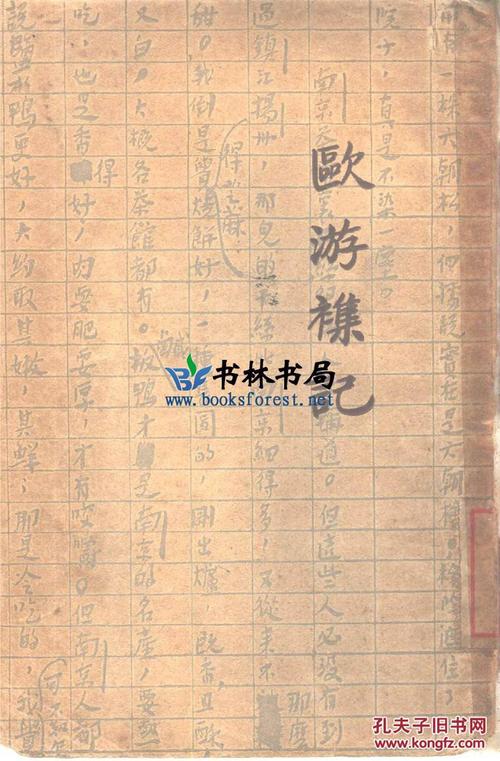 歐游襍記
前有一株六朝松，但據說實在是六朝檜。檜蔭遮住了
院子，真是不染一塵。
南京茶 道。但這些人必沒有到
過鎮江揚州，那兒的乾絲 細得多，又從來不那麼
甜。我倒是覺得芝蔴燒餅好，一種 圓的，剛出爐，既香，且酥，
又白，大概各茶館都有。鹹板鴨才是南京的名產，要熱
吃，也是香得好，肉要肥要厚，才有咬嚼。但南京人都
說鹽水鴨更好，大約取其嫩，其鮮；那是冷吃的，我
书林书局
www.booksforest.net
孔夫子旧书网
www.kongfz.com